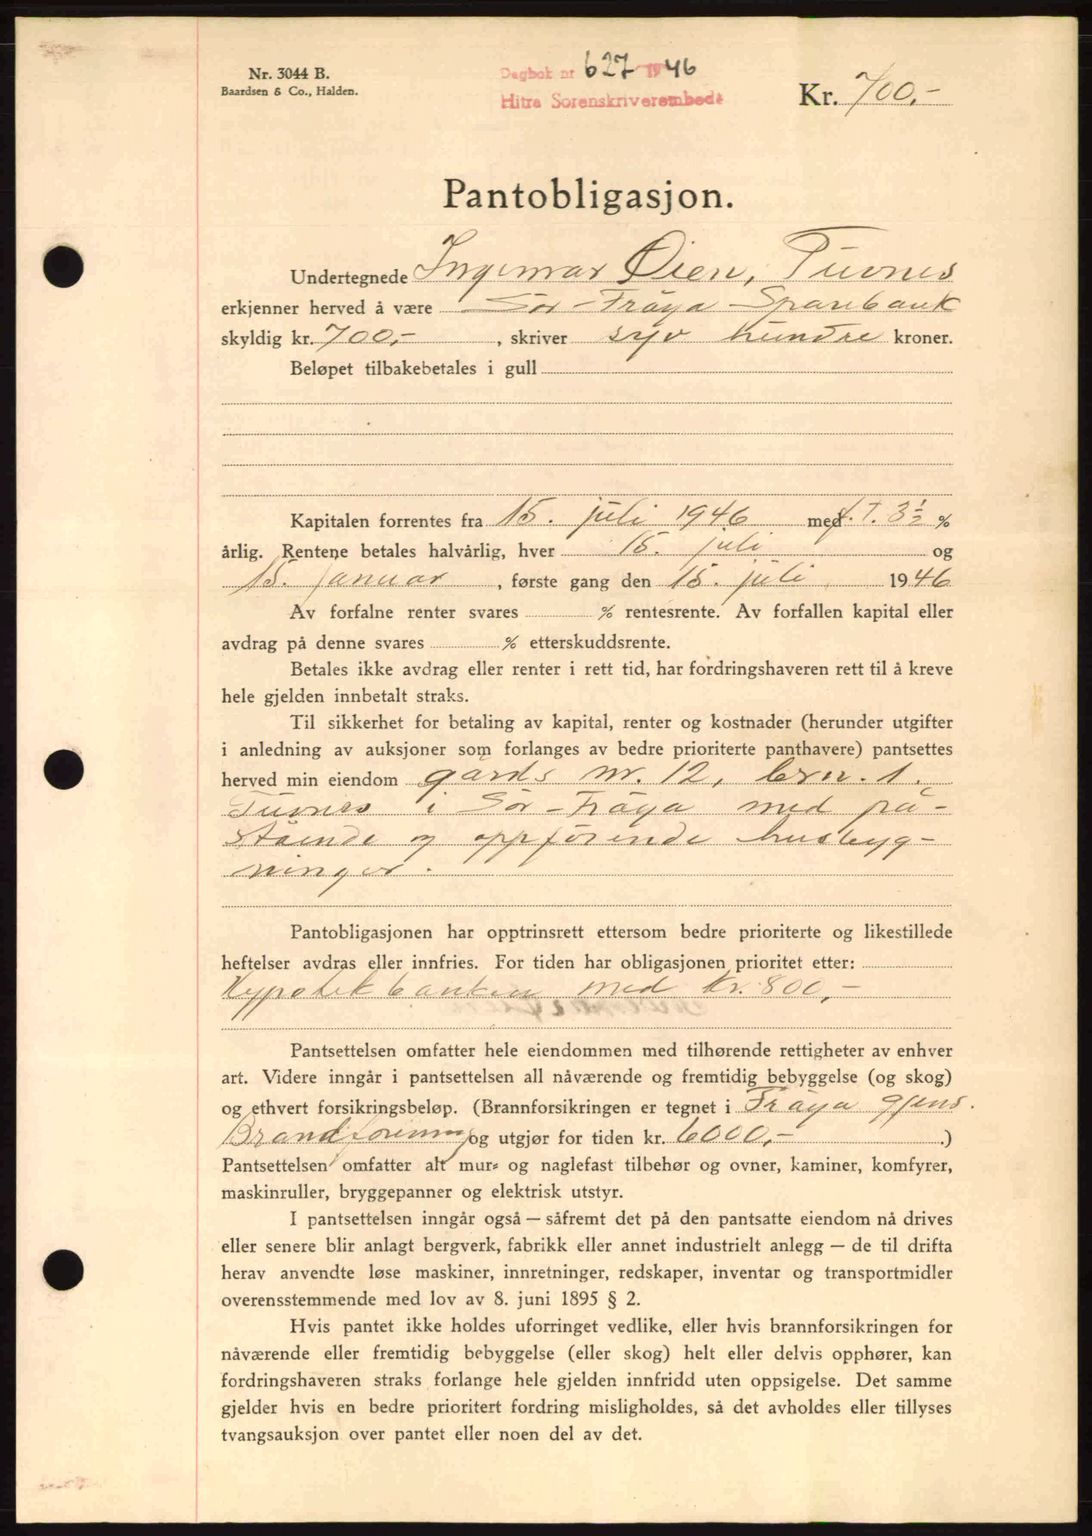 Nr. 3044 B.
Baardsen & Co., Halden.
Dagbok nr 627 1946
Hitra Sorenskriverembede
Kr. 700,-
Pantobligasjon.
Undertegnede Ingemar Øien, Tuvnes
erkjenner herved å være Sör-Fröya Sparebank
skyldig kr. 700,- , skriver syv hundre kroner.
Beløpet tilbakebetales i gull
Kapitalen forrentes fra 15. juli 1946 med f.t. 3½ %
årlig. Rentene betales halvårlig, hver 15. juli og
15. januar , første gang den 15. juli 1946
Av forfalne renter svares % rentesrente. Av forfallen kapital eller
avdrag på denne svares % etterskuddsrente.
Betales ikke avdrag eller renter i rett tid, har fordringshaveren rett til å kreve
hele gjelden innbetalt straks.
Til sikkerhet for betaling av kapital, renter og kostnader (herunder utgifter
i anledning av auksjoner som forlanges av bedre prioriterte panthavere) pantsettes
herved min eiendom gårds nr. 12, brn. 1.
Tuvnes i Sör-Fröya med på-
stående og oppförende husbyg-
ninger.
Pantobligasjonen har opptrinsrett ettersom bedre prioriterte og likestillede
heftelser avdras eller innfries. For tiden har obligasjonen prioritet etter:
Hypotekbanken med kr. 800,-
Pantsettelsen omfatter hele eiendommen med tilhørende rettigheter av enhver
art. Videre inngår i pantsettelsen all nåværende og fremtidig bebyggelse (og skog)
og ethvert forsikringsbeløp. (Brannforsikringen er tegnet i Fröya gjens.
Brandforening og utgjør for tiden kr. 6000,- .)
Pantsettelsen omfatter alt mur- og naglefast tilbehør og ovner, kaminer, komfyrer,
maskinruller, bryggepanner og elektrisk utstyr.
I pantsettelsen inngår også — såfremt det på den pantsatte eiendom nå drives
eller senere blir anlagt bergverk, fabrikk eller annet industrielt anlegg — de til drifta
herav anvendte løse maskiner, innretninger, redskaper, inventar og transportmidler
overensstemmende med lov av 8. juni 1895 § 2.
Hvis pantet ikke holdes uforringet vedlike, eller hvis brannforsikringen for
nåværende eller fremtidig bebyggelse (eller skog) helt eller delvis opphører, kan
fordringshaveren straks forlange hele gjelden innfridd uten oppsigelse. Det samme
gjelder hvis en bedre prioritert fordring misligholdes, så det avholdes eller tillyses
tvangsauksjon over pantet eller noen del av det.